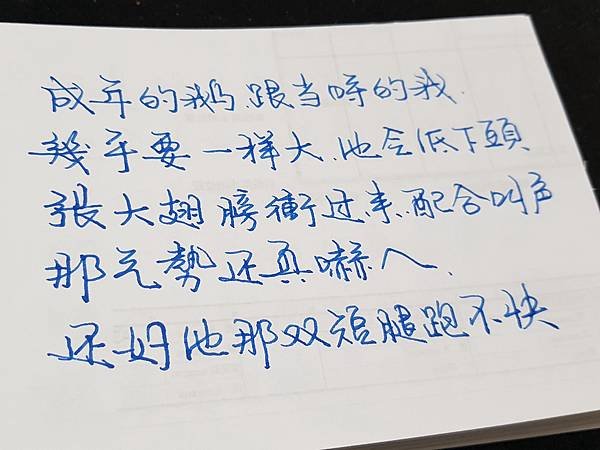 成年的鵝.跟当時的我.
幾乎要一样大.他会低下頭
張大翅膀衝过来.配合叫声
那气勢还真嚇人.
还好他那双短腿跑不快